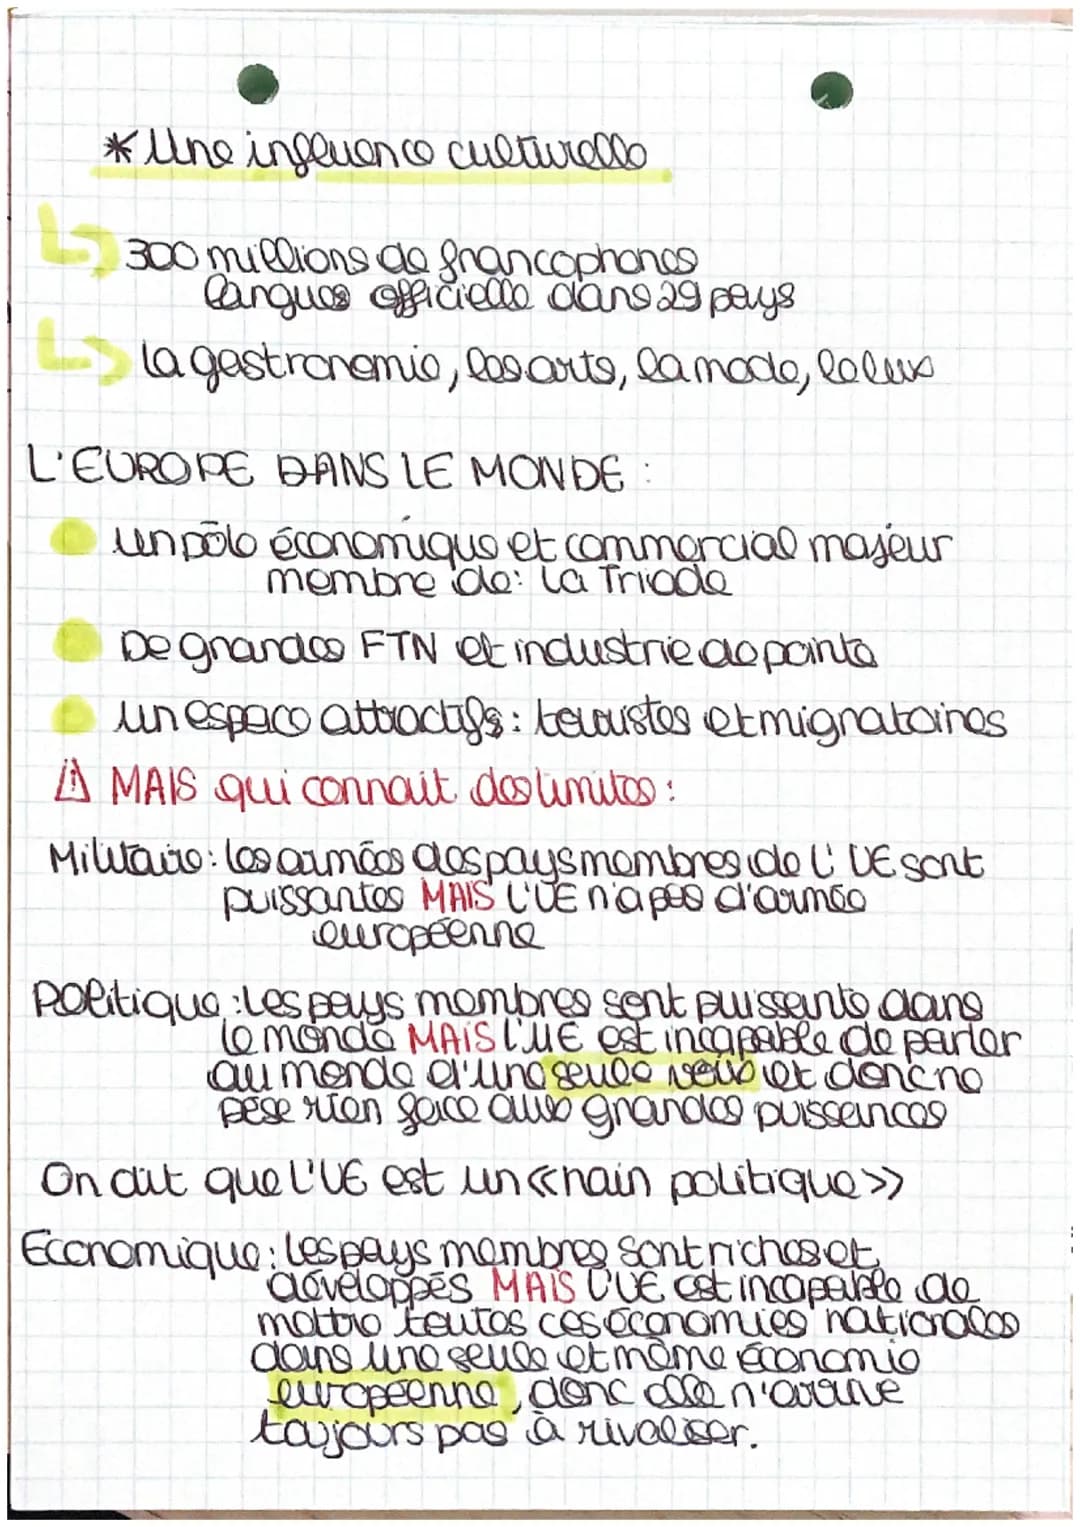 * Une influence culturelle
↳ 300 millions de francophones
langues officielle dans 29 pays
↳ la gastronomie, les arts, la mode, le lux
L'EUROPE DANS LE MONDE :
un pôle économique et commercial majeur
membre de : la Triade
De grandes FTN et industrie de pointe
un espace attractifs : touristes et migratoires
⚠ MAIS qui connait des limites :
Militaire : les armées des pays membres de l'UE sont
puissantes MAIS l'UE n'a pas d'armée
européenne
Politique : les pays membres sont puissants dans
le monde MAIS l'UE est incapable de parler
au monde d'une seule voix et donc ne
pèse rien face aux grandes puissances
On dit que l'UE est un «nain politique»
Economique : les pays membres sont riches et
développés MAIS l'UE est incapable de
mettre toutes ces économies nationales
dans une seule et même économie
européenne, donc elle n'arrive
toujours pas à rivaliser.